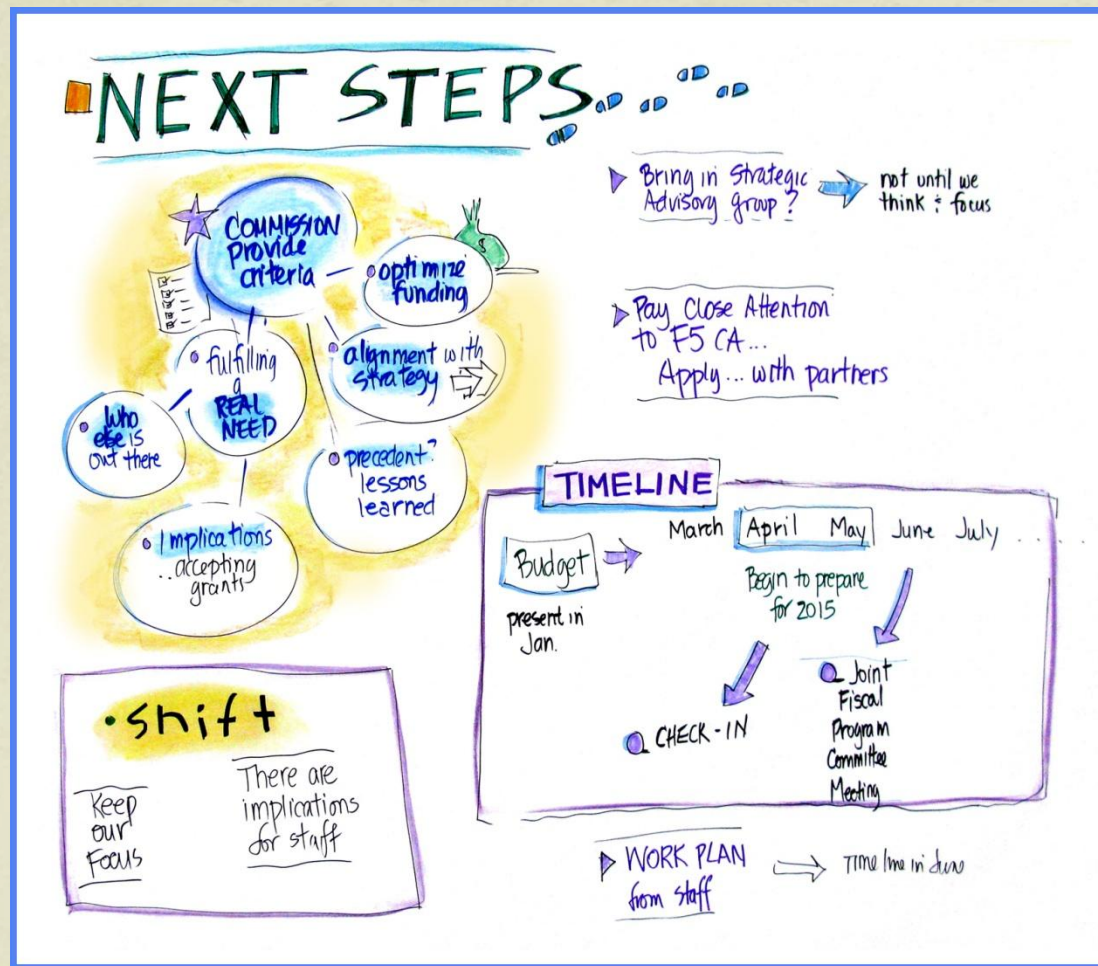 NEXT STEPS
COMMISSION
Provide
criteria
optimize
funding
alignment with
strategy
fulfilling
a
REAL
NEED
Who
else is
out there
precedent?
lessons
learned
Implications
...accepting
grants
• shift
Keep
our
Focus
There are
implications
for staff
Bring in Strategic
Advisory group?
not until we
think : focus
Pay Close Attention
to F5 CA...
Apply... with partners
TIMELINE
March April May June July ......
Budget
present in
Jan.
Begin to prepare
for 2015
CHECK-IN
Joint
Fiscal
Program
Committee
Meeting
WORK PLAN
from staff
Timeline in June